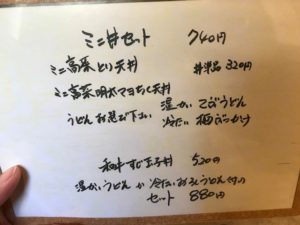 ミニ丼セット 740円
ミニ高菜とり天丼 丼単品 320円
ミニ高菜明太マヨちく天丼
温かい てぶうどん
うどんお選び下さい 冷たい 梅ぶっかけ
和牛すじ玉子丼 520円
温かいうどん か 冷たいおろしうどん付の
セット 880円